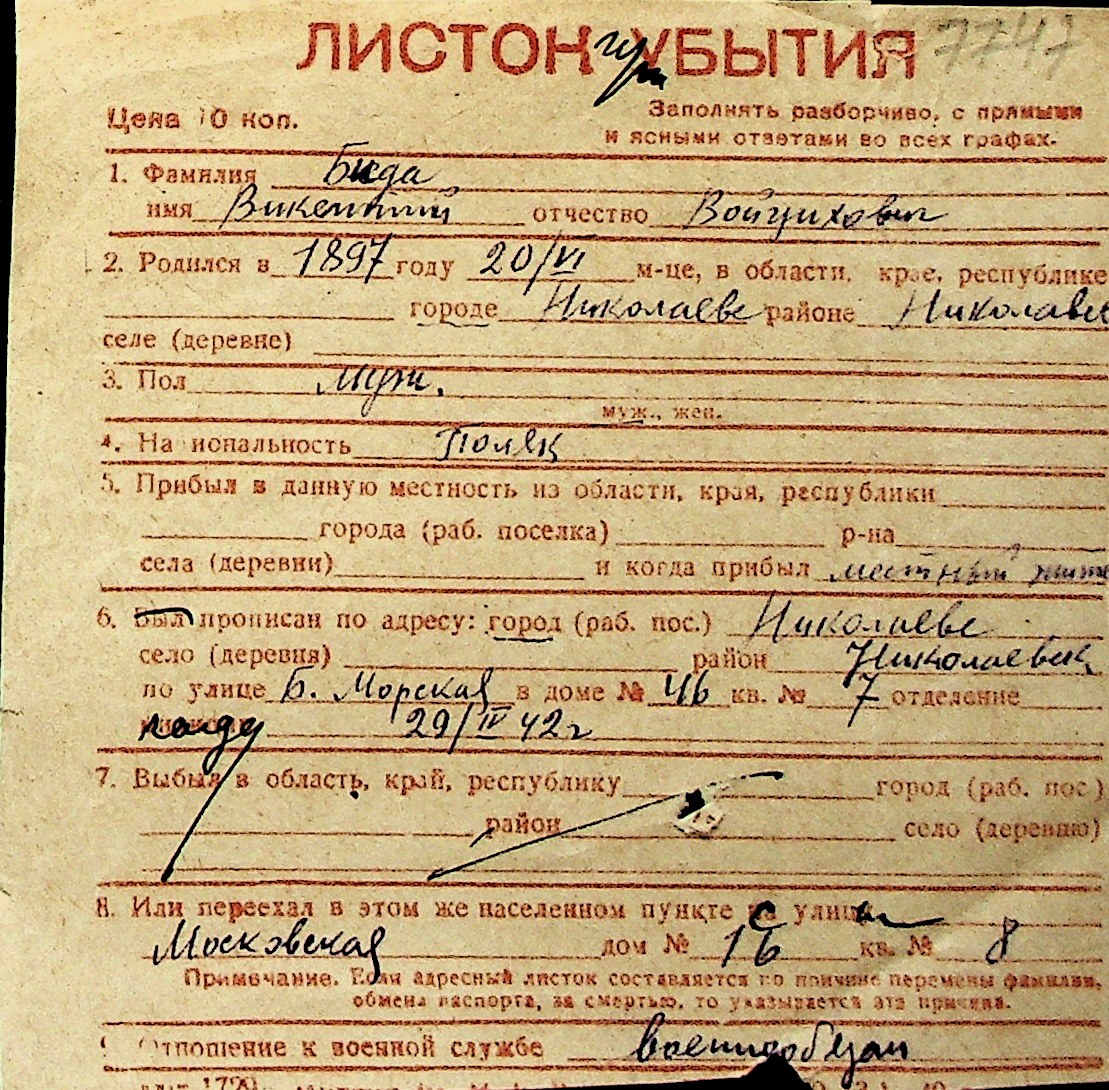 ЛИСТОК УБЫТИЯ 7747
при
Цена 10 коп. Заполнять разборчиво, с прямыми
и ясными ответами во всех графах.
1. Фамилия Бида
имя Викентий отчество Войцихович
2. Родился в 1897 году 20/VI м-це, в области, крае, республике
городе Николаеве районе Николаевс
селе (деревне)
3. Пол муж.
муж., жен.
4. Национальность Поляк
5. Прибыл в данную местность из области, края, республики
города (раб. поселка) р-на
села (деревни) и когда прибыл местный жите
6. Был прописан по адресу: город (раб. пос.) Николаеве
село (деревня) район Николаевск
по улице Б. Морская в доме № 46 кв. № 7 отделение
когда 29/IV 42 г
7. Выбыл в область, край, республику город (раб. пос.)
район село (деревню)
8. Или переехал в этом же населенном пункте с улицы
Московская дом № 16 кв. № 8
Примечание. Если адресный листок составляется по причине перемены фамилии,
обмена паспорта, за смертью, то указывается эта причина.
9. Отношение к военной службе военнообязан